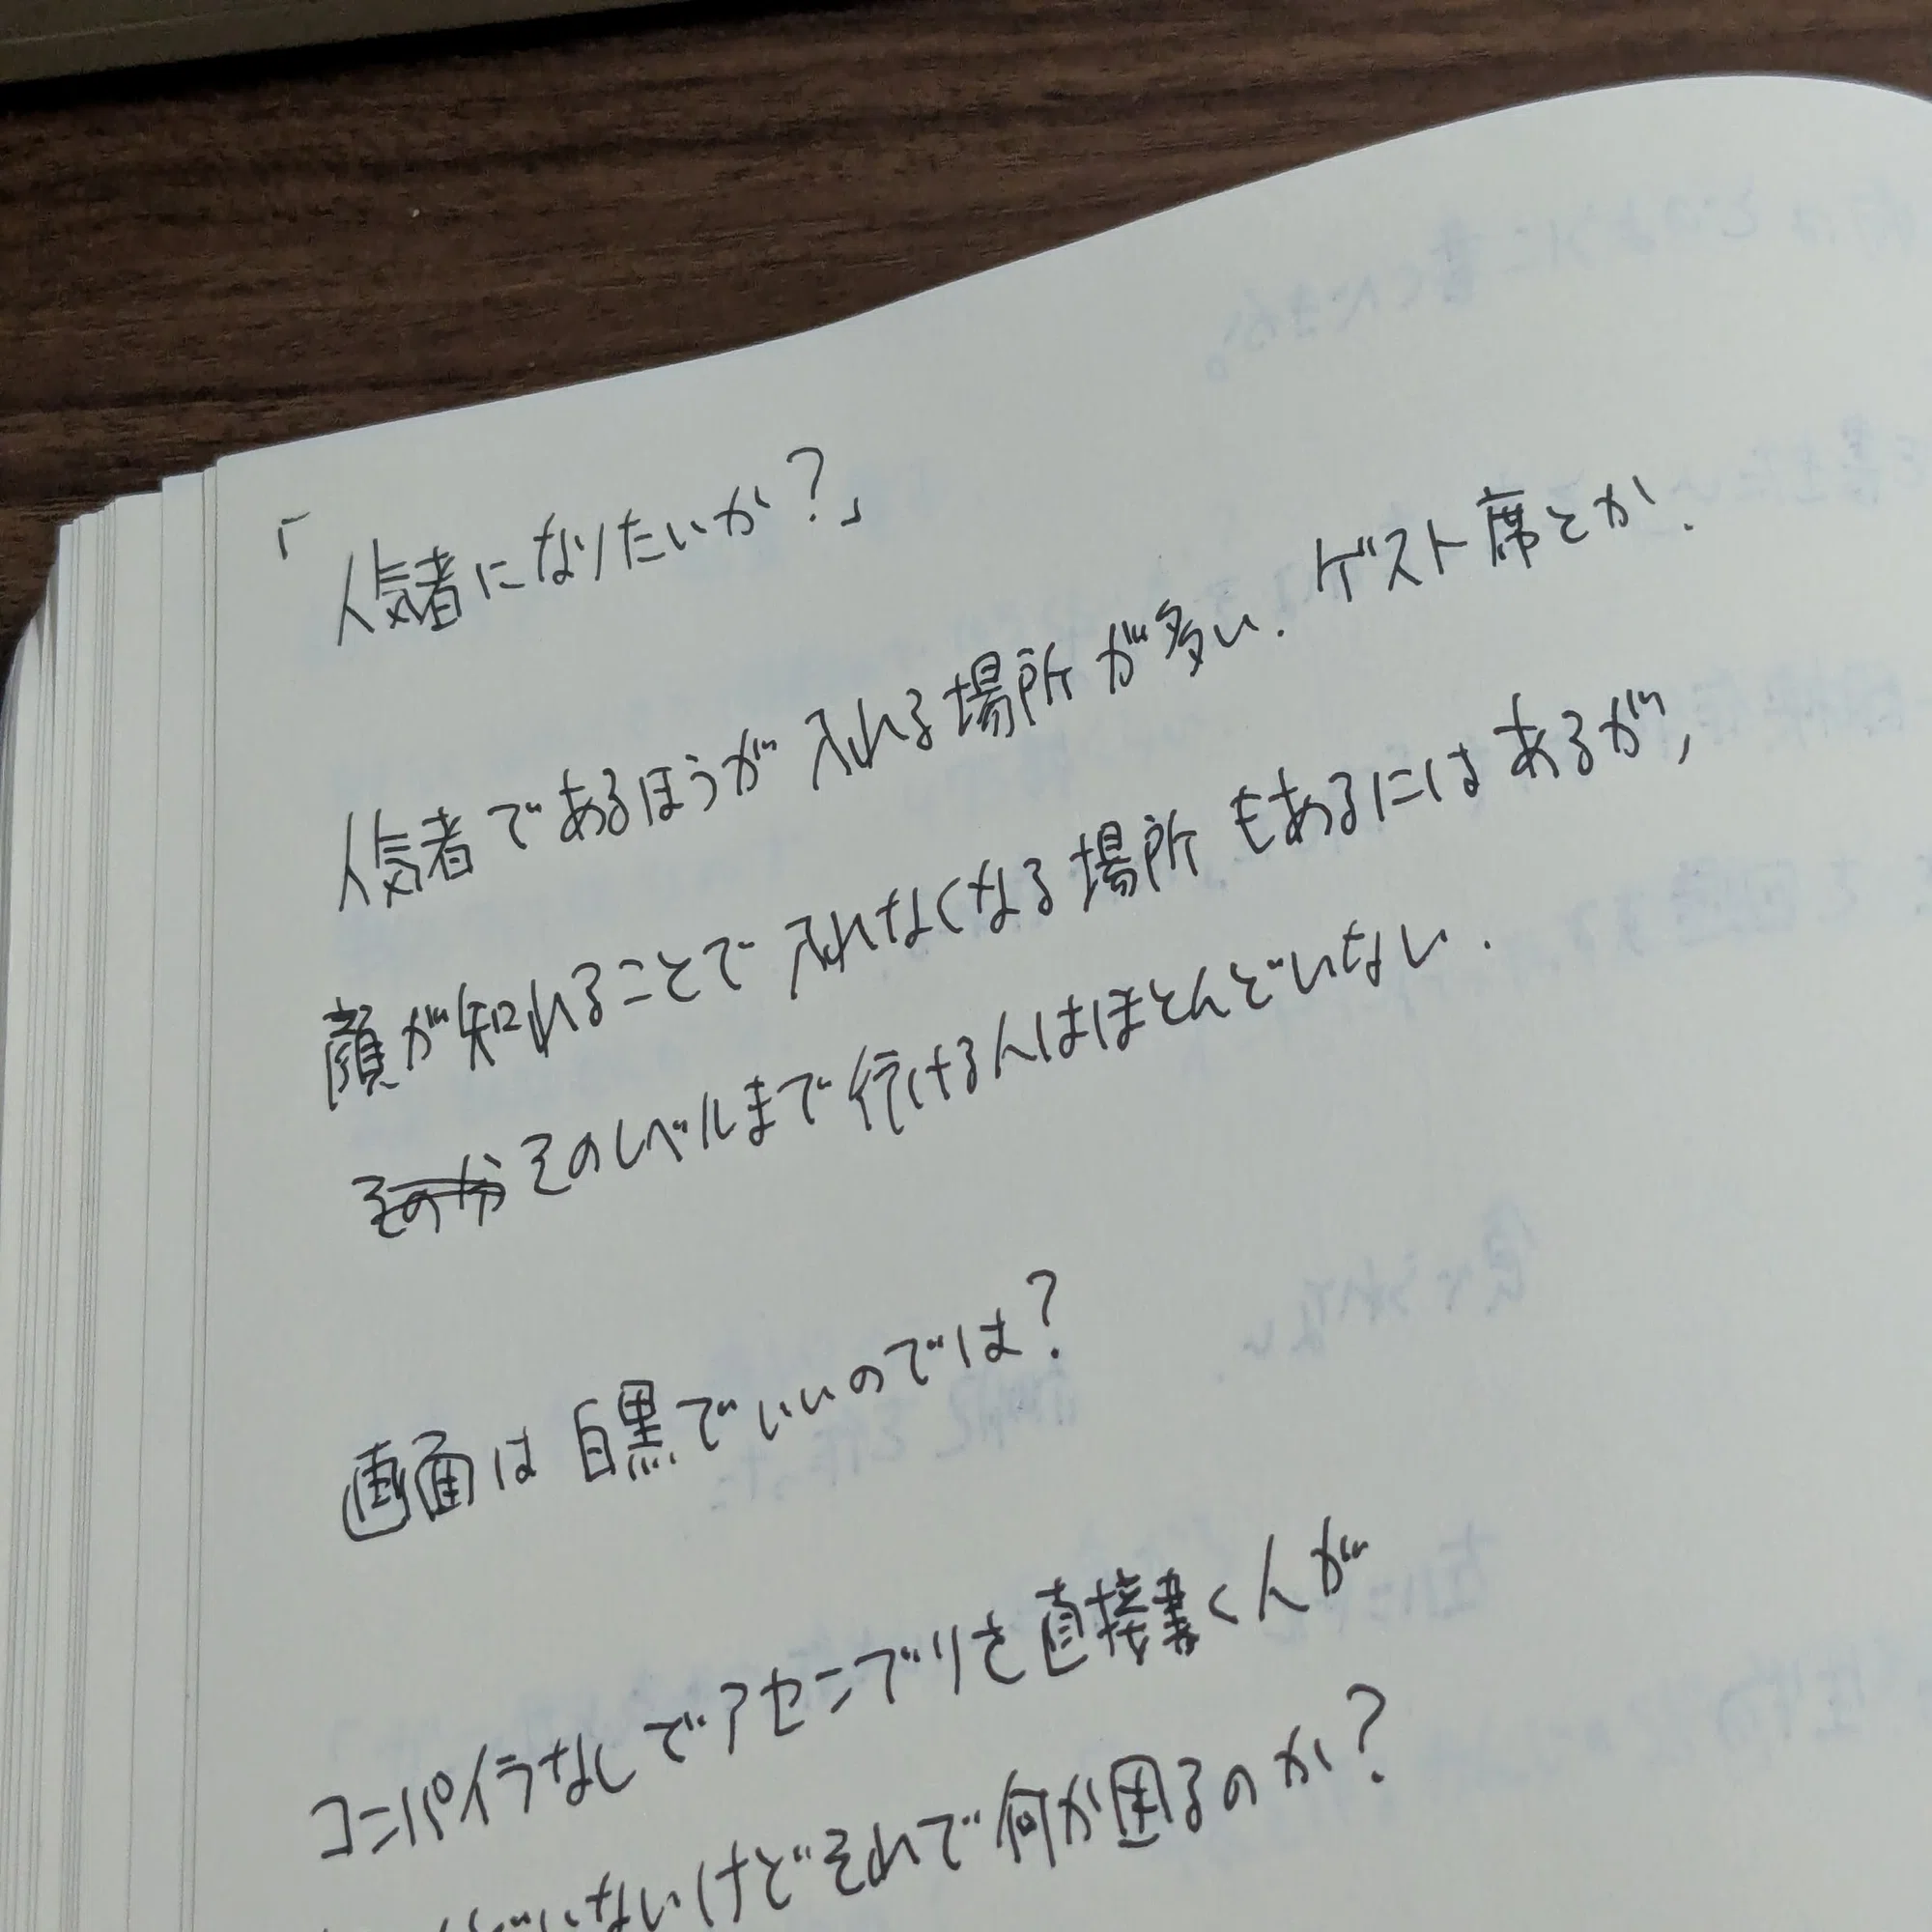 「人気者になりたいか?」
人気者であるほうが入れる場所が多い. ゲスト席とか.
顔が知れることで入れなくなる場所もあるにはあるが,
そのレベルまで行ける人はほとんどいない.
画面は白黒でいいのでは?
コンパイラなしでアセンブリを直接書く人が
いないけどそれで何か困るのか?